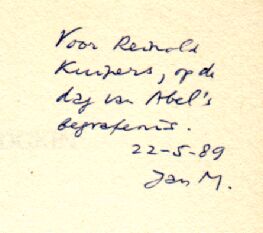 Voor Reinold
Kuipers, op de
dag van Abel's
begrafenis.
22-5-89
Jan M.